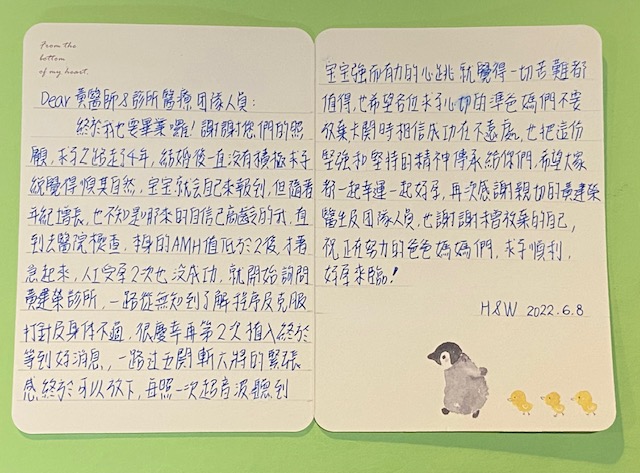 From the
bottom
of my heart.
Dear 黃醫師&診所醫療團隊人員：
終於我也要畢業囉！謝謝您們的照
顧，求子路走了4年，結婚後一直沒有積極求子
總覺得順其自然，宝宝就會自己來報到，但隨著
年紀增長，也不知是哪來的自信已高齡的我，直
到去醫院檢查，本身的AMH值低於2後，才著
急起來，人工受孕2次也沒成功，就開始詢問
黃建榮診所，一路從無知到了解程序及克服
打針及身体不適，很慶幸再第2次植入終於
等到好消息，一路过五関斬六將的緊張
感終於可以放下，再照一次超音波聽到
宝宝強而有力的心跳，就覺得一切苦難都
值得，也希望各位求子心切的準爸媽們不要
放棄卡関時相信成功在不遠處，也把這份
堅強和堅持的精神傳承給你們，希望大家
都一起幸運一起好孕，再次感謝親切的黃建榮
醫生及團隊人員，也謝謝未曾放棄的自己，
祝正在努力的爸爸媽媽們，求子順利，
好孕來臨！
H&W 2022.6.8